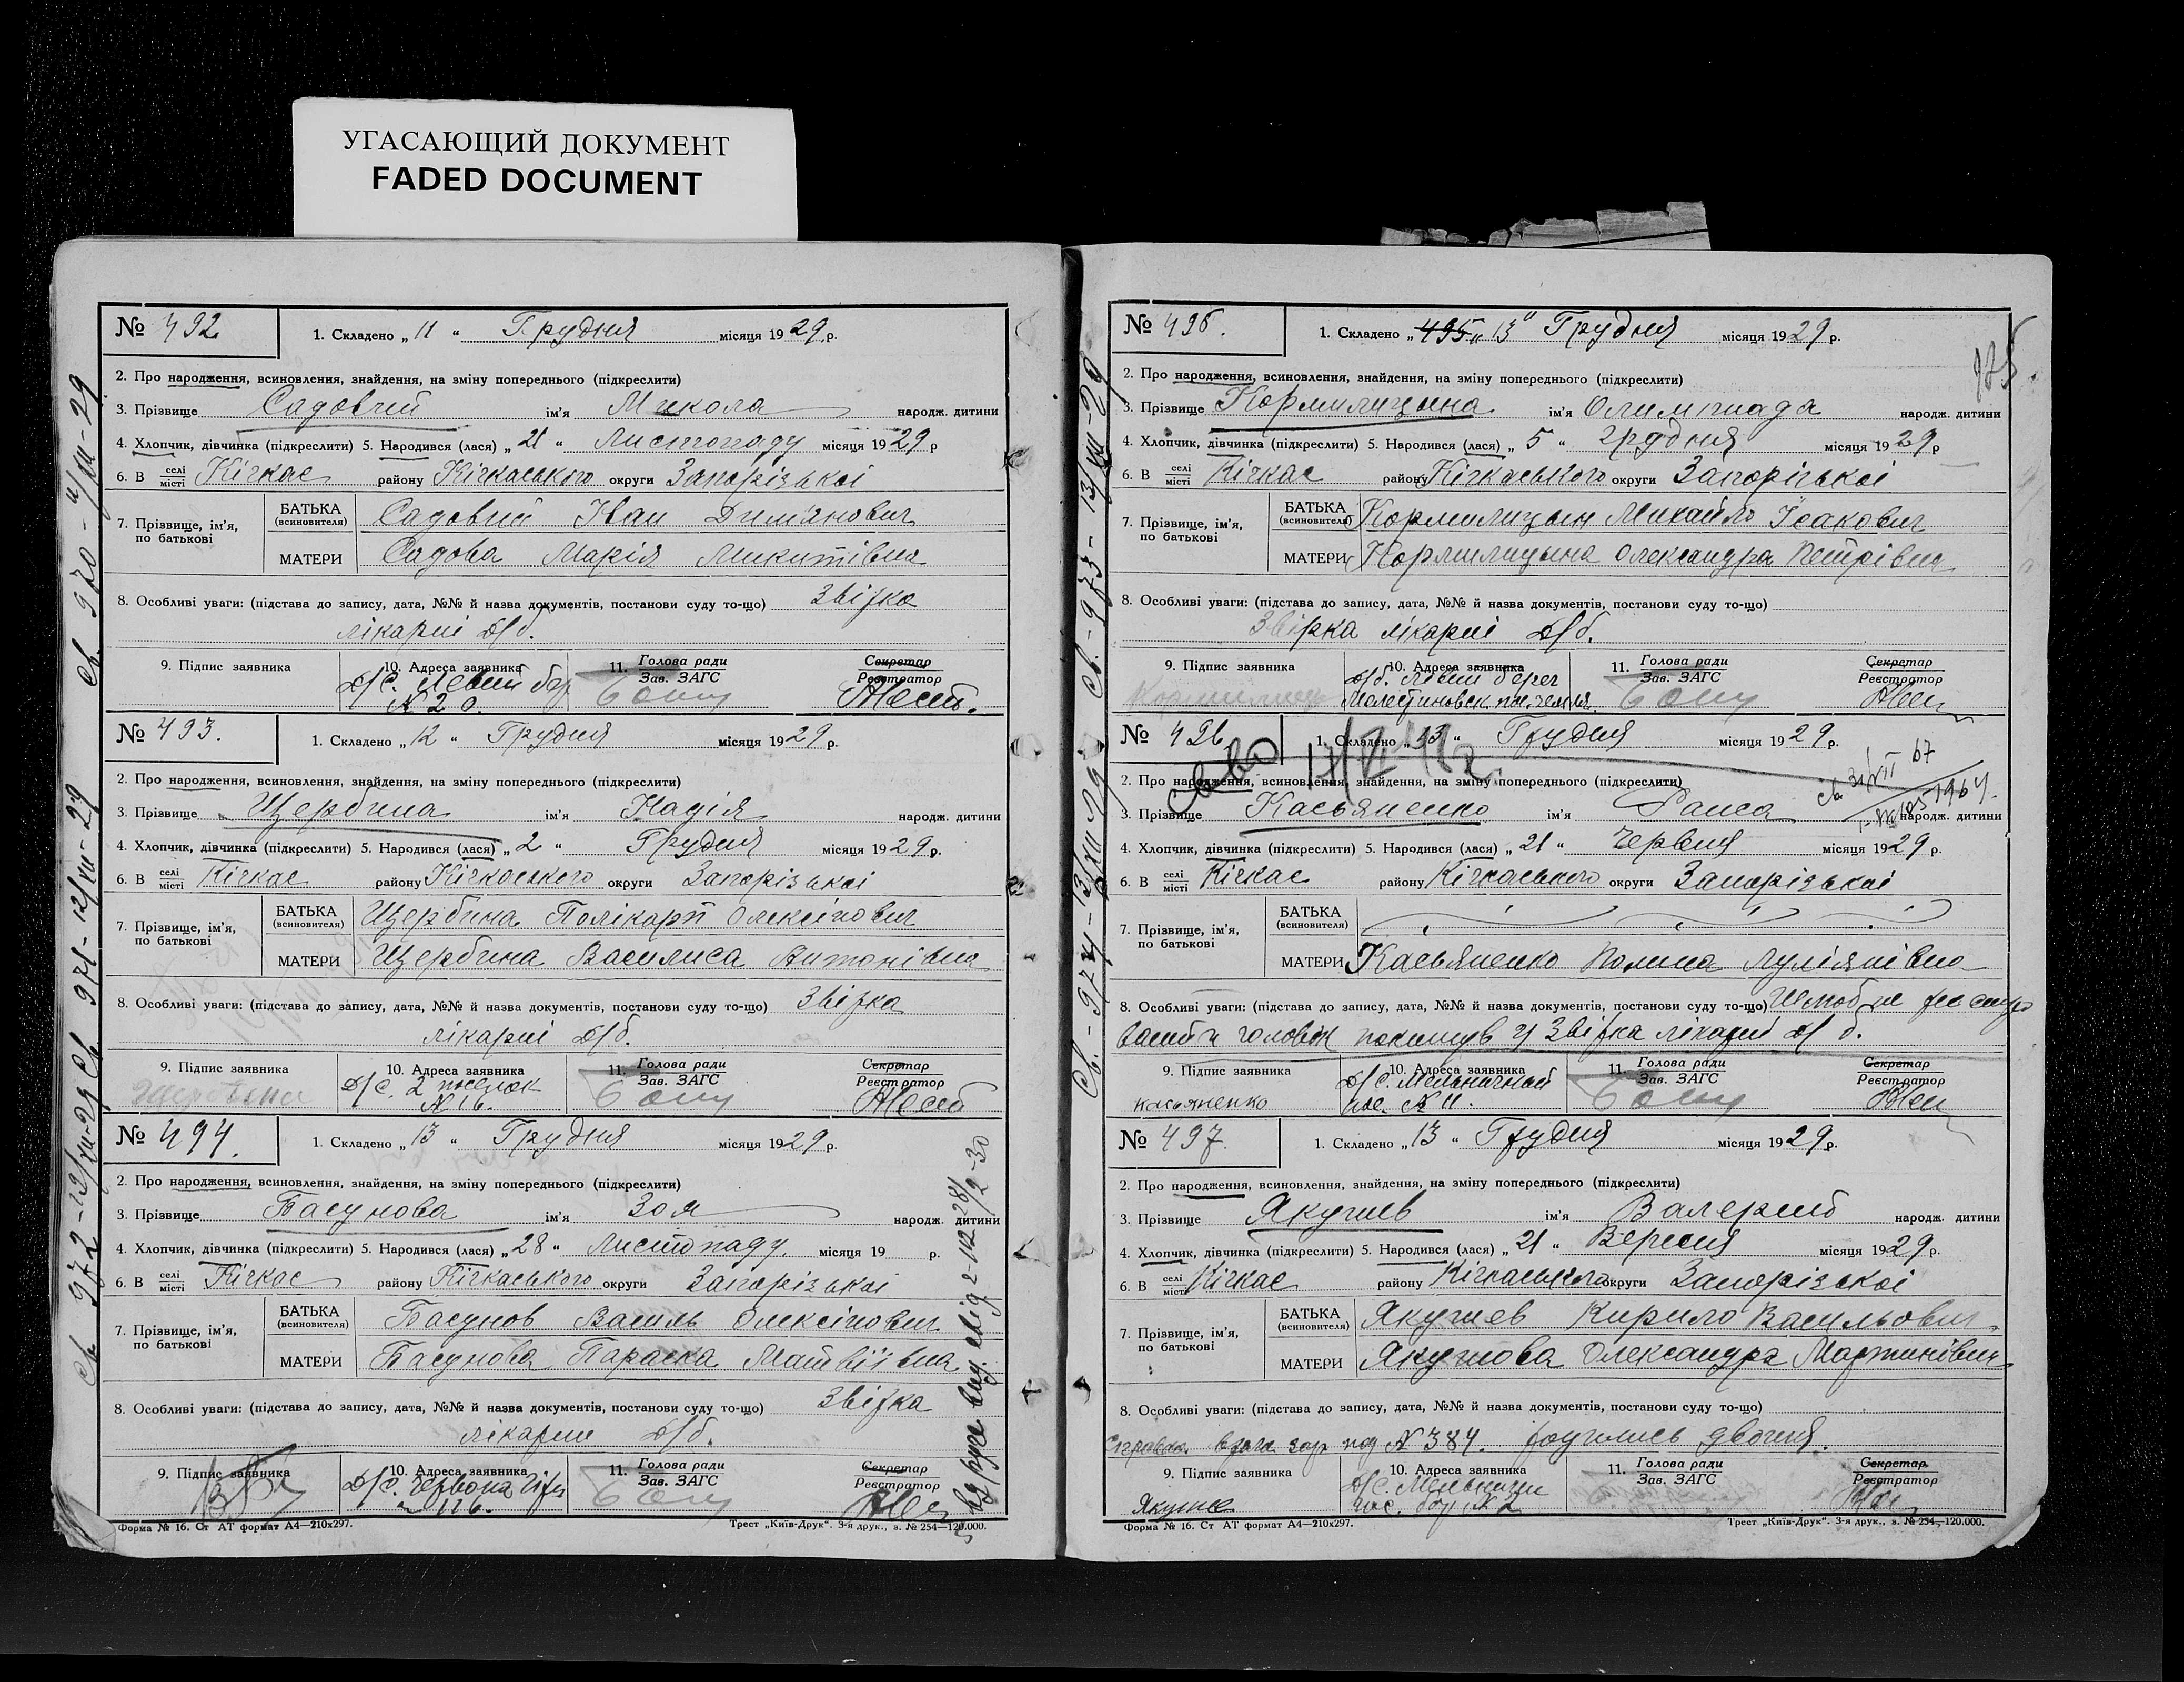 УГАСАЮЩИЙ ДОКУМЕНТ
FADED DOCUMENT
№ 492
1. Складено „ 11 “ Грудня місяця 1929 р.
2. Про народження, всиновлення, знайдення, на зміну попереднього (підкреслити)
3. Прізвище Садовий ім'я Микола народж. дитини
4. Хлопчик, дівчинка (підкреслити) 5. Народився (лася) „ 21 “ Листопаду місяця 1929 р
6. В селі місті Кічкас району Кічкаського округи Запорізької
7. Прізвище, ім'я, по батькові
БАТЬКА (всиновителя) Садовий Іван Демьянович
МАТЕРИ Садова Марія Микитівна
8. Особливі уваги: (підстава до запису, дата, №№ й назва документів, постанови суду то-що) Звірка
лікарні д/б.
9. Підпис заявника
10. Адреса заявника Д/С. Левий бер № 20.
11. Голова ради Зав. ЗАГС
Секретар Реєстратор
№ 493.
1. Складено „ 12 “ Грудня місяця 1929 р.
2. Про народження, всиновлення, знайдення, на зміну попереднього (підкреслити)
3. Прізвище Щербина ім'я Надія народж. дитини
4. Хлопчик, дівчинка (підкреслити) 5. Народився (лася) „ 2 “ Грудня місяця 1929 р.
6. В селі місті Кічкас району Кічкаського округи Запорізької
7. Прізвище, ім'я, по батькові
БАТЬКА (всиновителя) Щербина Полікарп Олексійович
МАТЕРИ Щербина Василиса Антонівна
8. Особливі уваги: (підстава до запису, дата, №№ й назва документів, постанови суду то-що) Звірка
лікарні д/б.
9. Підпис заявника Щербина
10. Адреса заявника Д/С. 2 поселок № 16.
11. Голова ради Зав. ЗАГС
Секретар Реєстратор
№ 494.
1. Складено „ 13 “ Грудня місяця 1929 р.
2. Про народження, всиновлення, знайдення, на зміну попереднього (підкреслити)
3. Прізвище Басунова ім'я Зоя народж. дитини
4. Хлопчик, дівчинка (підкреслити) 5. Народився (лася) „ 28 “ Листопаду місяця 19 р.
6. В селі місті Кічкас району Кічкаського округи Запорізької
7. Прізвище, ім'я, по батькові
БАТЬКА (всиновителя) Басунов Василь Олексійович
МАТЕРИ Басунова Параска Матвіївна
8. Особливі уваги: (підстава до запису, дата, №№ й назва документів, постанови суду то-що) Звірка
лікарні д/б.
9. Підпис заявника
10. Адреса заявника Д/С. Червона № 116.
11. Голова ради Зав. ЗАГС
Секретар Реєстратор
Форма № 16. Ст АТ формат А4—210х297.
Трест „Київ-Друк“. 3-я друк., з. № 254—120.000.
Св 970 - 11/XII-29
Св 971 - 12/XII-29
Св 972 - 13/XII-29
№ 495.
1. Складено „ 495 “ 13 “ Грудня місяця 1929 р.
2. Про народження, всиновлення, знайдення, на зміну попереднього (підкреслити)
3. Прізвище Кормилицына ім'я Олимпиада народж. дитини
4. Хлопчик, дівчинка (підкреслити) 5. Народився (лася) „ 5 “ грудня місяця 1929 р
6. В селі місті Кічкас району Кічкаського округи Запорізької
7. Прізвище, ім'я, по батькові
БАТЬКА (всиновителя) Кормилицын Михайло Ісакович
МАТЕРИ Кормилицына Олександра Петрівна
8. Особливі уваги: (підстава до запису, дата, №№ й назва документів, постанови суду то-що)
Звірка лікарні д/б.
9. Підпис заявника
10. Адреса заявника Д/б. Левий берег
11. Голова ради Зав. ЗАГС
Секретар Реєстратор
№ 496
1. Складено „ 13 “ Грудня місяця 1929 р.
2. Про народження, всиновлення, знайдення, на зміну попереднього (підкреслити)
3. Прізвище Касьяненко ім'я Раиса народж. дитини
4. Хлопчик, дівчинка (підкреслити) 5. Народився (лася) „ 21 “ Червня місяця 1929 р.
6. В селі місті Кічкас району Кічкаського округи Запорізької
7. Прізвище, ім'я, по батькові
БАТЬКА (всиновителя)
МАТЕРИ Касьяненко Полина
8. Особливі уваги: (підстава до запису, дата, №№ й назва документів, постанови суду то-що) Шлюб не
чоловік покинув Звірка лікарні д/б.
9. Підпис заявника касьяненко
10. Адреса заявника Д/С. Мельничный пос. № 11.
11. Голова ради Зав. ЗАГС
Секретар Реєстратор
№ 497.
1. Складено „ 13 “ Грудня місяця 1929 р.
2. Про народження, всиновлення, знайдення, на зміну попереднього (підкреслити)
3. Прізвище Якушев ім'я Валерий народж. дитини
4. Хлопчик, дівчинка (підкреслити) 5. Народився (лася) „ 21 “ Вересня місяця 1929 р.
6. В селі місті Кічкас району Кічкаського округи Запорізької
7. Прізвище, ім'я, по батькові
БАТЬКА (всиновителя) Якушев Кирило Васильович
МАТЕРИ Якушова Олександра Мартинівна
8. Особливі уваги: (підстава до запису, дата, №№ й назва документів, постанови суду то-що)
Справка № 384. двойня.
9. Підпис заявника Якушев
10. Адреса заявника № 2
11. Голова ради Зав. ЗАГС
Секретар Реєстратор
Форма № 16. Ст АТ формат А4—210х297.
Трест „Київ-Друк“. 3-я друк., з. № 254—120.000.
Св. - 973 - 13/XII-29
Св. - 974 - 13/XII 29